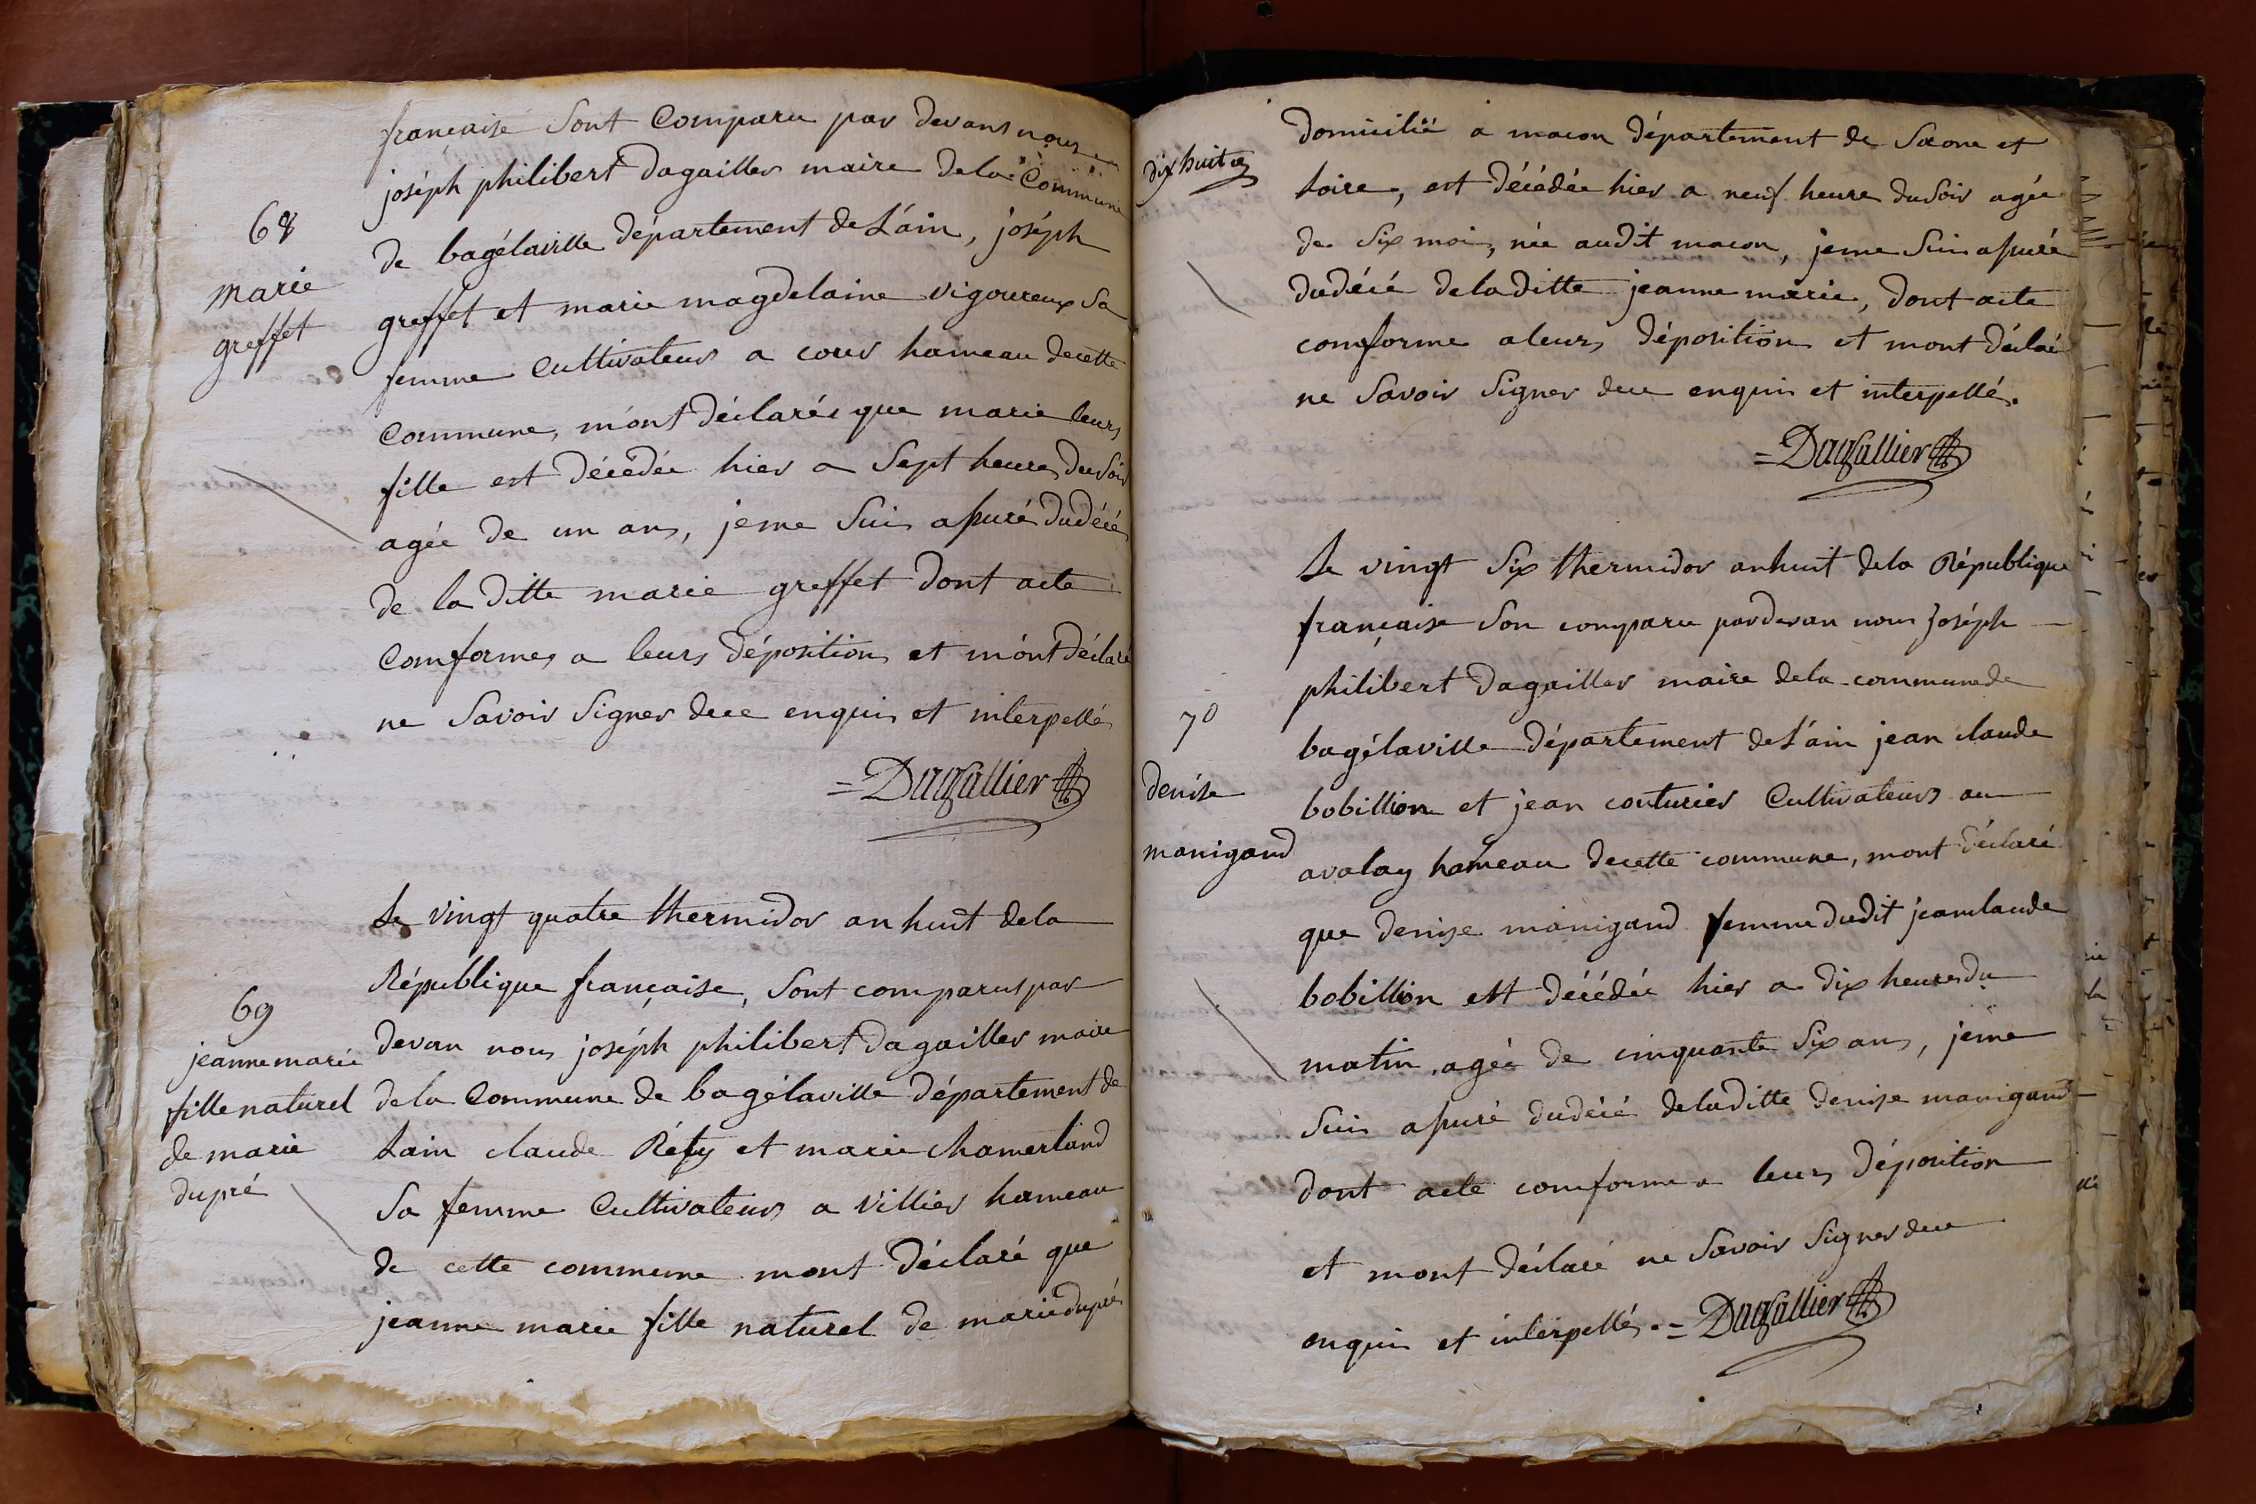 68
marie
greffet
française sont comparu par devans nous
joséph philibert dagailler maire dela commune
de bagélaville département de L'ain, joséph
greffet et marie magdelaine vigoureux sa
femme cultivateurs a cour hameau decette
commune, m'ont déclarés que marie leurs
fille est décédée hier a sept heures du soir
agée de un ans, jeme suis assuré du décé
de la ditte marie greffet dont acte
comformes a leurs dépositions et m'ont déclaré
ne savoir signer dece enquis et interpellés
=Dagallier
69
jeanne marie
fille naturel
de marie
dupré
Le vingt quatre thermidor an huit dela
République française, sont comparus par
devan nous joséph philibert dagailler maire
dela commune de bagélaville département de
Lain claude Réty et marie chamerland
sa femme cultivateurs a villier hameau
de cette commune mont déclaré que
jeanne marie fille naturel de marie dupré
dix huit
domicilié a macon département de saone et
Loire, est décédée hier a neuf heure du soir agée
de six mois, née audit macon, jeme suis assuré
dudécé deladitte jeanne marie, dont acte
comforme a leurs déposition et mont déclaré
ne savoir signer dece enquis et interpellés.
=Dagallier
70
denise
manigand
Le vingt six thermidor an huit dela République
française son comparu par devan nous joséph
philibert dagailler maire dela commune de
bagélaville département de L'ain jean claude
bobillion et jean couturier cultivateurs au
avalay hameau decette commune, mont déclaré
que denise manigand femme dudit jean claude
bobillion est décédée hier a dix heures du
matin, agée de cinquante six ans, jeme
suis assuré dudécé deladitte denise manigand
dont acte comforme a leurs déposition
et mont déclaré ne savoir signer dece
enquis et interpellés. =Dagallier